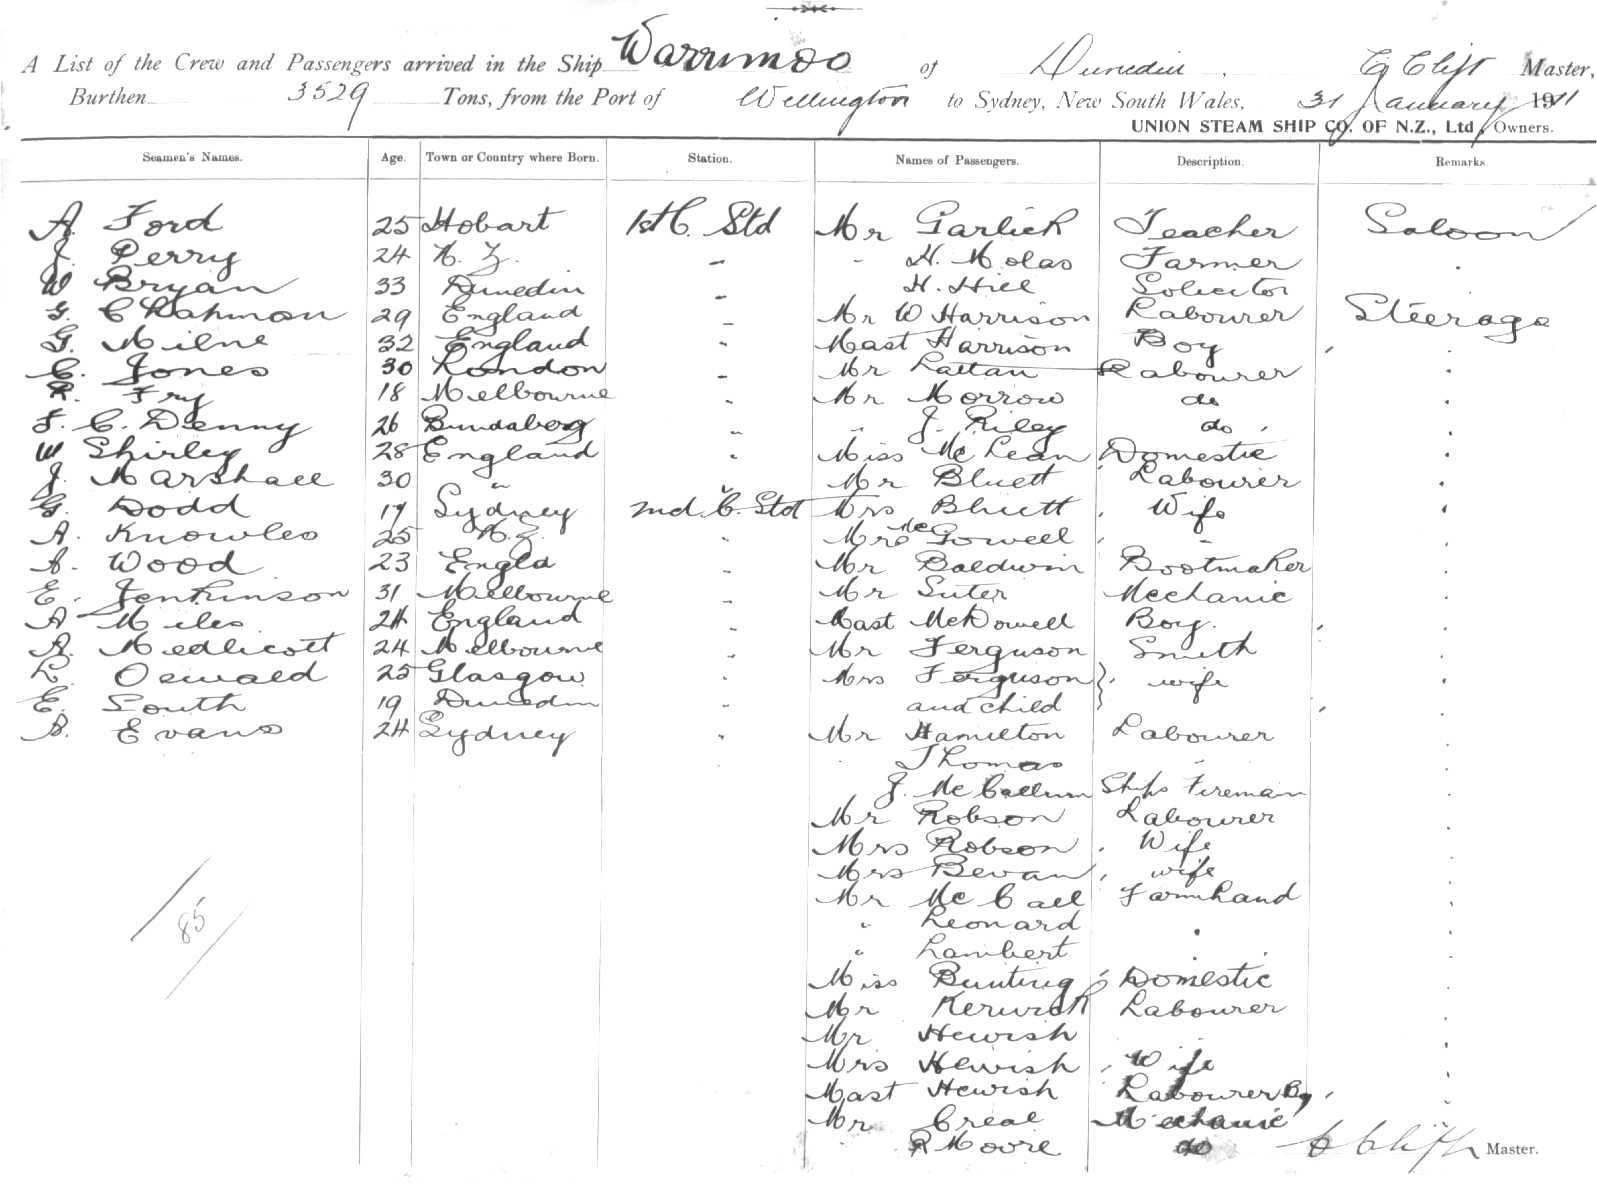 A List of the Crew and Passengers arrived in the Ship Warrimoo of Dunedin, C Clift Master,
Burthen 3529 Tons, from the Port of Wellington to Sydney, New South Wales, 31 January 1911
UNION STEAM SHIP CO. OF N.Z., Ltd, Owners.
Seamen's Names. Age. Town or Country where Born. Station. Names of Passengers. Description. Remarks
A. Ford 25 Hobart 1st C. Std Mr Garlick Teacher Saloon
J. Perry 24 N. Z. " " H. Molas Farmer "
W Bryan 33 Dunedin " H. Hill Solicitor
G. Chapman 29 England " Mr W Harrison Labourer Steerage
G. Milne 32 England " Mast Harrison Boy "
C. Jones 30 London " Mr Lattan Labourer "
R. Fry 18 Melbourne " Mr Morrow do "
F. C. Denny 26 Bundaberg " " J. Riley do "
W Shirley 28 England " Miss McLean Domestic "
J. Marshall 30 " " Mr Bluett Labourer "
G. Dodd 19 Sydney 2nd. C. Std Mrs Bluett Wife "
A. Knowles 25 N.Z. " Mrs McGowell " "
A. Wood 23 Engld " Mr Baldwin Bootmaker "
E. Jenkinson 31 Melbourne " Mr Suter Mechanic "
A Miles 24 England " Mast McDowell Boy. "
A. Medlicott 24 Melbourne " Mr Ferguson Smith "
L. Oswald 25 Glasgow " Mrs Ferguson } wife "
E. South 19 Dunedin " and child "
A. Evans 24 Sydney " Mr Hamilton Labourer "
Thomas " "
J. McCallum Ships Fireman "
Mr Robson Labourer "
Mrs Robson Wife "
Mrs Bevan wife "
Mr McCall Farmhand "
" Leonard " "
" Lambert " "
85
Miss Bunting Domestic "
Mr Kerwick Labourer "
Mr Hewish " "
Mrs Hewish Wife "
Mast Hewish Labourer Boy "
Mr Creal Mechanic
R Moore do C Clift Master.